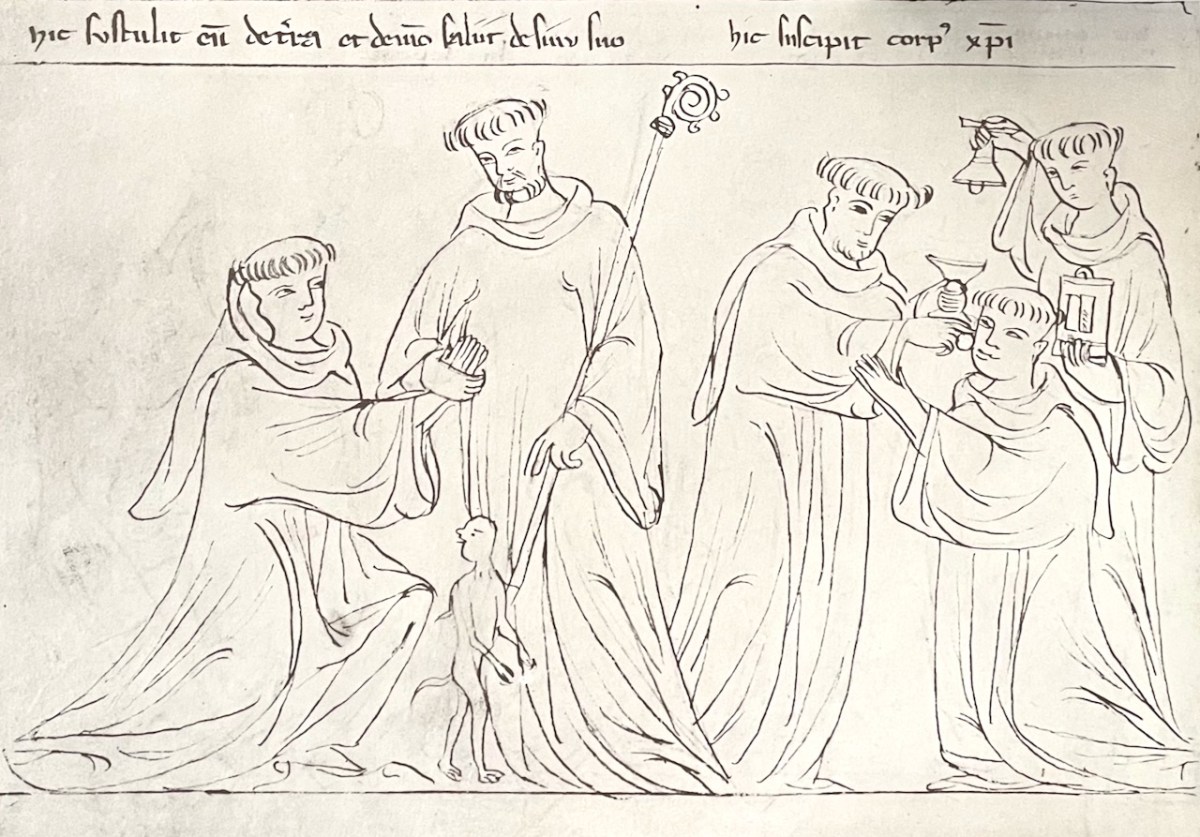 hic sustulit eū de t̄ra et demō saliit de sinu suo hic suscipit corpꝰ xp̄i